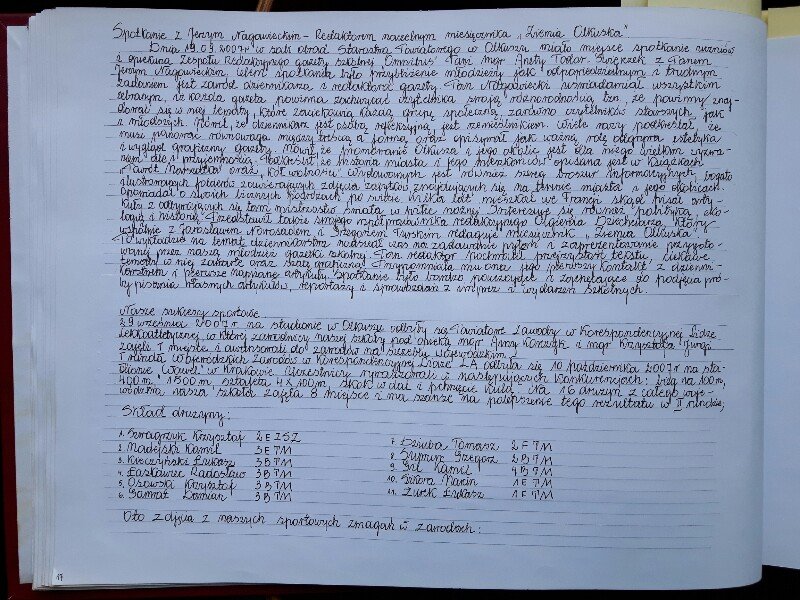 Spotkanie z Jerzym Nagawieckim - Redaktorem naczelnym miesięcznika „Ziemia Olkuska".
Dnia 19.09.2007r w sali obrad Starostwa Powiatowego w Olkuszu miało miejsce spotkanie uczniów
i opiekuna Zespołu Redakcyjnego gazety szkolnej Pani mgr Anety z Panem
Jerzym Nagawieckim. Celem spotkania było przybliżenie młodzieży jak odpowiedzialnym i trudnym
zadaniem jest zawód dziennikarza i redaktora gazety. Pan Nagawiecki uświadamiał wszystkim
zebranym, że każda gazeta powinna zachwycać czytelnika swoją różnorodnością tzn, że powinny znaj-
dować się w niej tematy, które zaciekawią każdą grupę społeczną, zarówno czytelników starszych, jak
i młodszych. Mówił, że dziennikarz jest osobą refleksyjną, jest rzemieślnikiem. Wiele razy podkreślał, że
musi panować równowaga między treścią a formą oraz opisywał jak ważną rolę odgrywa estetyka
i wygląd graficzny gazety. Mówił, że promowanie Olkusza i jego okolic jest dla niego wielkim wyzwa-
niem ale i przyjemnością. Podkreślił, że historia miasta i jego mieszkańców opisana jest w książkach
oraz „Kot wolności". Wydawanych jest również szereg broszur informacyjnych, bogato
ilustrowanych folderów zawierających zdjęcia zabytków znajdujących się na terenie miasta i jego okolicach.
Opowiadał o swoich licznych podróżach po świecie. Kilka lat mieszkał we Francji skąd pisał arty-
kuły z odbywających się tam mistrzostw świata w piłce nożnej. Interesuje się również polityką, eko-
logią i historią. Przedstawił także swojego współpracownika redakcyjnego Olgierda Dziechciarza, który
wspólnie z Jarosławem Nowosadem i Grzegorzem redaguje miesięcznik „Ziemia Olkuska".
Po wykładzie na temat dziennikarstwa nadszedł czas na zadawanie pytań i zaprezentowanie przygoto-
wanej przez naszą młodzież gazetki szkolnej. Pan redaktor pochwalił przejrzystość tekstu, ciekawe
w niej zawarte oraz szatę graficzną. Przypomniała mu ona jego pierwszy kontakt z dzienni-
karstwem i pierwsze napisane artykuły. Spotkanie było bardzo pouczające i zachęcające do podjęcia pró-
by pisania własnych artykułów, reportaży i sprawozdań z imprez i wydarzeń szkolnych.
Nasze sukcesy sportowe.
29 września 2007r na stadionie w Olkuszu odbyły się Powiatowe Zawody w Korespondencyjnej Lidze
Lekkoatletycznej, w której zawodnicy naszej szkoły pod opieką mgr Anny i mgr Krzysztofa
zajęli I miejsce i awansowali do zawodów na szczeblu wojewódzkim.
I runda Wojewódzkich Zawodów w Korespondencyjnej Lidze LA odbyła się 10 października 2007r na sta-
dionie „Wawel" w Krakowie. Uczestnicy rywalizowali w następujących konkurencjach: bieg na 100m,
400m, 1500m, sztafeta 4x100m, skok w dal i pchnięcie kulą. Na 16 drużyn z całego woje-
wództwa nasza szkoła zajęła 8 miejsce i ma szansę na polepszenie tego rezultatu w II rundzie.
Skład drużyny:
1. Szwagrzyk Krzysztof 2 E ZSZ
2. Madejski Kamil 3 E TM
3. Kieczyński Łukasz 3 B TM
4. Łasławiec Radosław 3 B TM
5. Osowski Krzysztof 3 B TM
6. Damian 3 B TM
7. Dziuba Tomasz 2 F TM
8. Grzegorz 2 B TM
9. Gil Kamil 4 B TM
10. Sikora Marcin 1 E TM
11. Żurek Łukasz 1 E TM
Oto zdjęcia z naszych sportowych zmagań w zawodach:
17